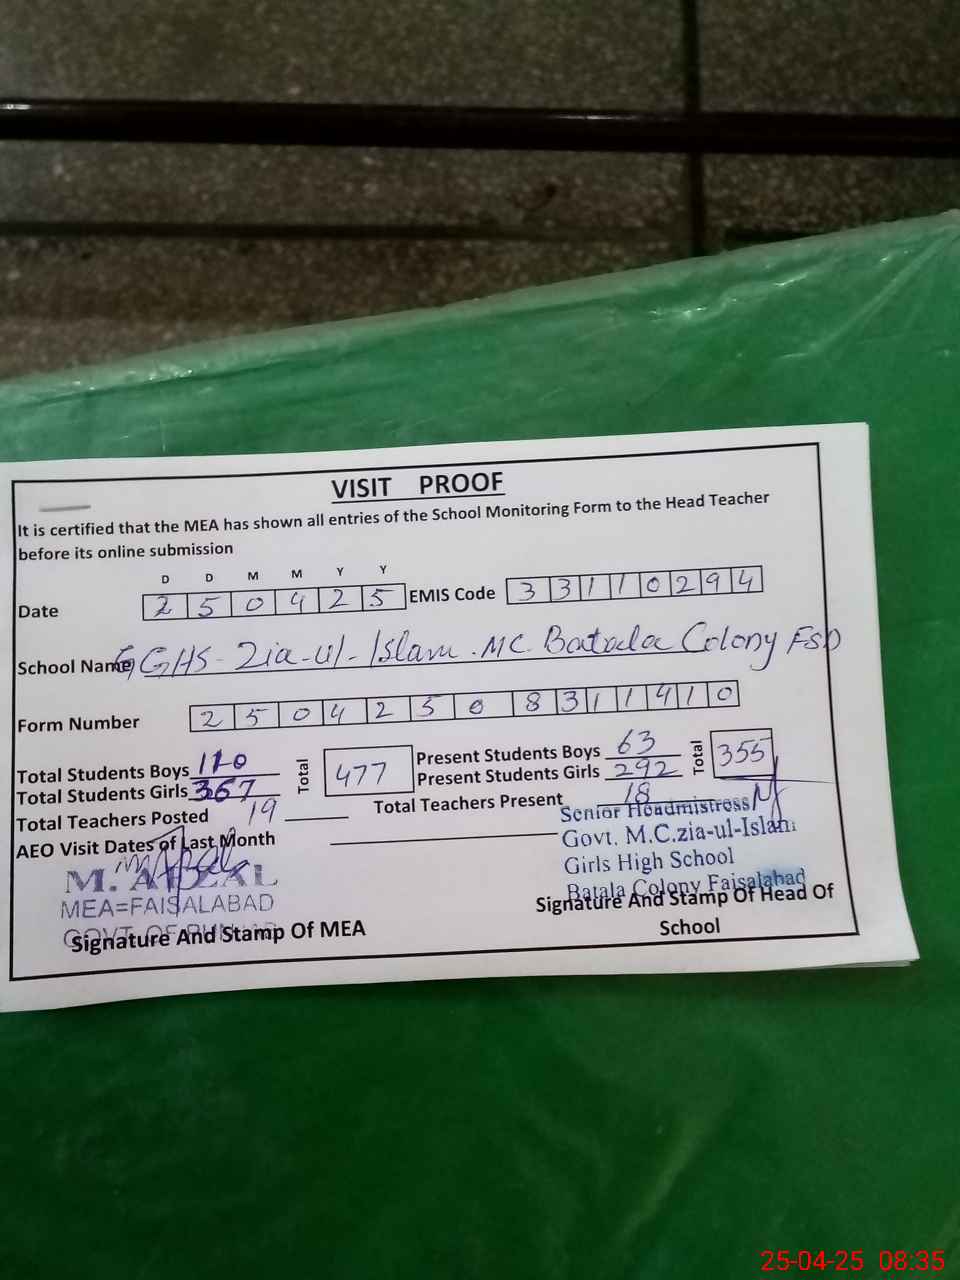 VISIT PROOF
It is certified that the MEA has shown all entries of the School Monitoring Form to the Head Teacher
before its online submission
D D M M Y Y
Date 2 5 0 4 2 5 EMIS Code 3 3 1 1 0 2 9 4
School Name GGHS Zia-ul-Islam. MC Batala Colony FSD
Form Number 2 5 0 4 2 5 0 8 3 1 1 4 1 0
Total Students Boys 110 Total 477 Present Students Boys 63 Total 355
Total Students Girls 367 Present Students Girls 292
Total Teachers Posted 19 Total Teachers Present 18
AEO Visit Dates of Last Month
Senior Headmistress
Govt. M.C.zia-ul-Islam
Girls High School
Batala Colony Faisalabad
M. AFZAL
MEA=FAISALABAD
GOVT. OF PUNJAB
Signature And Stamp Of MEA
Signature And Stamp Of Head Of
School
25-04-25 08:35